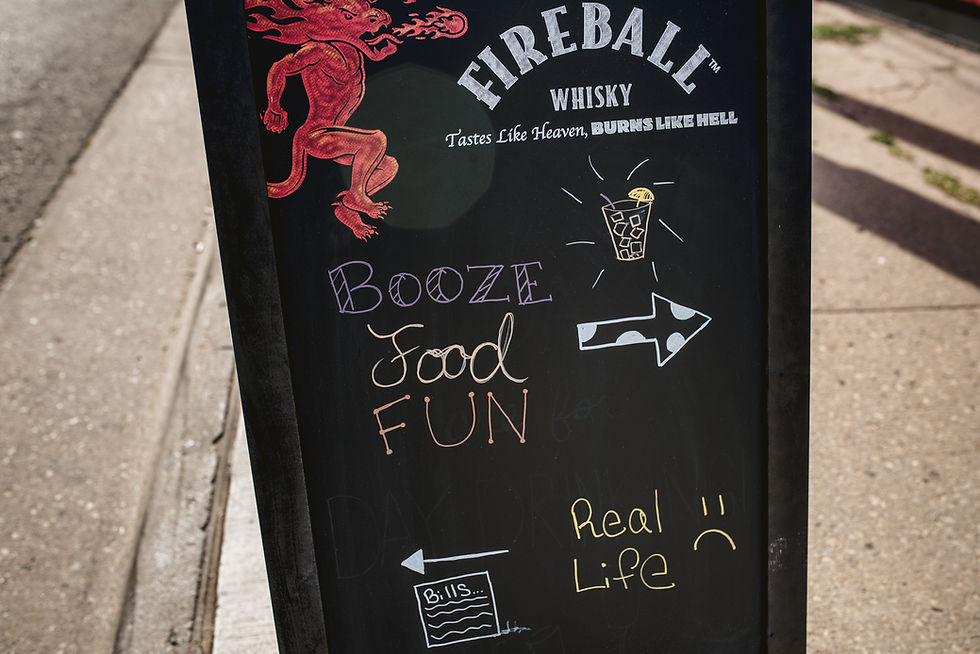 FIREBALL™
WHISKY
Tastes Like Heaven, BURNS LIKE HELL
BOOZE
Food
FUN
for
DAY DRINKING
Real
Life
Bills...